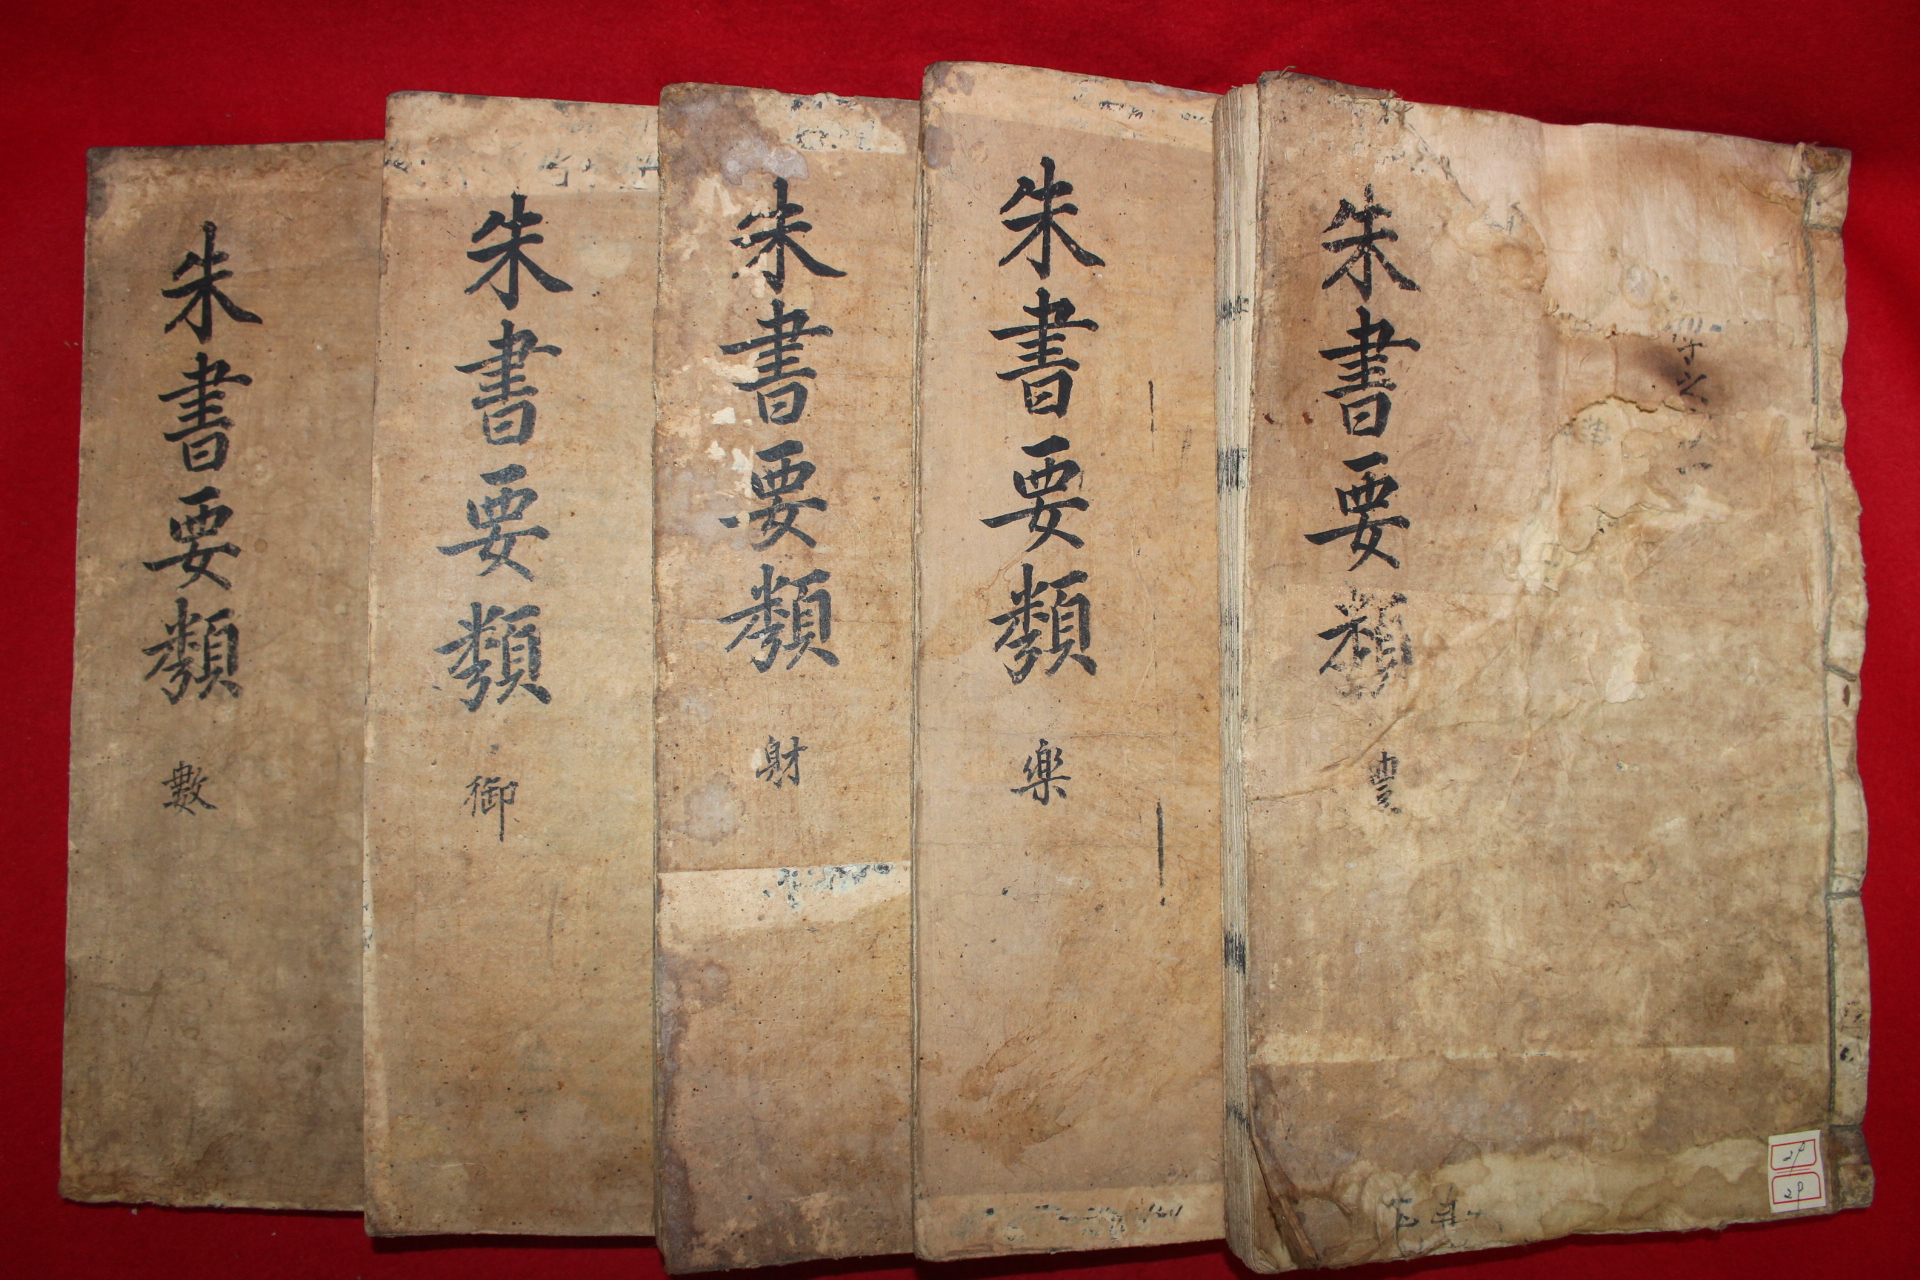 朱書要類 豊
朱書要類 楽
朱書要類 射
朱書要類 御
朱書要類 數
29
29